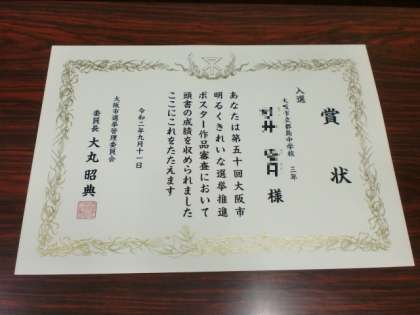 賞状
入選
大阪市立都島中学校 三年
井 様
あなたは第五十回大阪市
明るくきれいな選挙推進
ポスター作品審査において
頭書の成績を収められました
ここにこれをたたえます
令和二年九月十一日
大阪市選挙管理委員会
委員長 大丸昭典